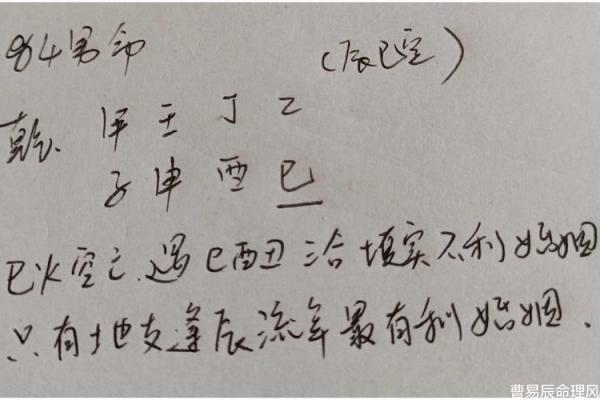 84男命 (辰巳空)
乾、 甲 壬 丁 乙
子 申 酉 巳
巳火空亡.遇巳酉丑三合填实不利婚姻
只有地支逢辰流年最有利婚姻.
曹易辰命理风